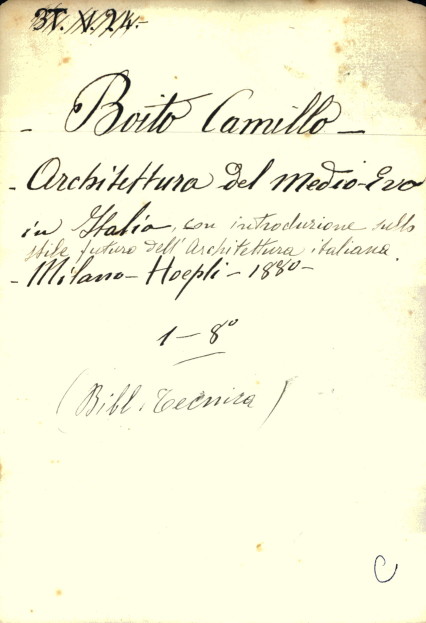 – Boito Camillo –
- Architettura del Medio-Evo
in Italia, con introduzione sullo
stile futuro dell'Architettura italiana.
- Milano - Hoepli - 1880 -
1 - 8°
(Bibl. Tecnica)
C